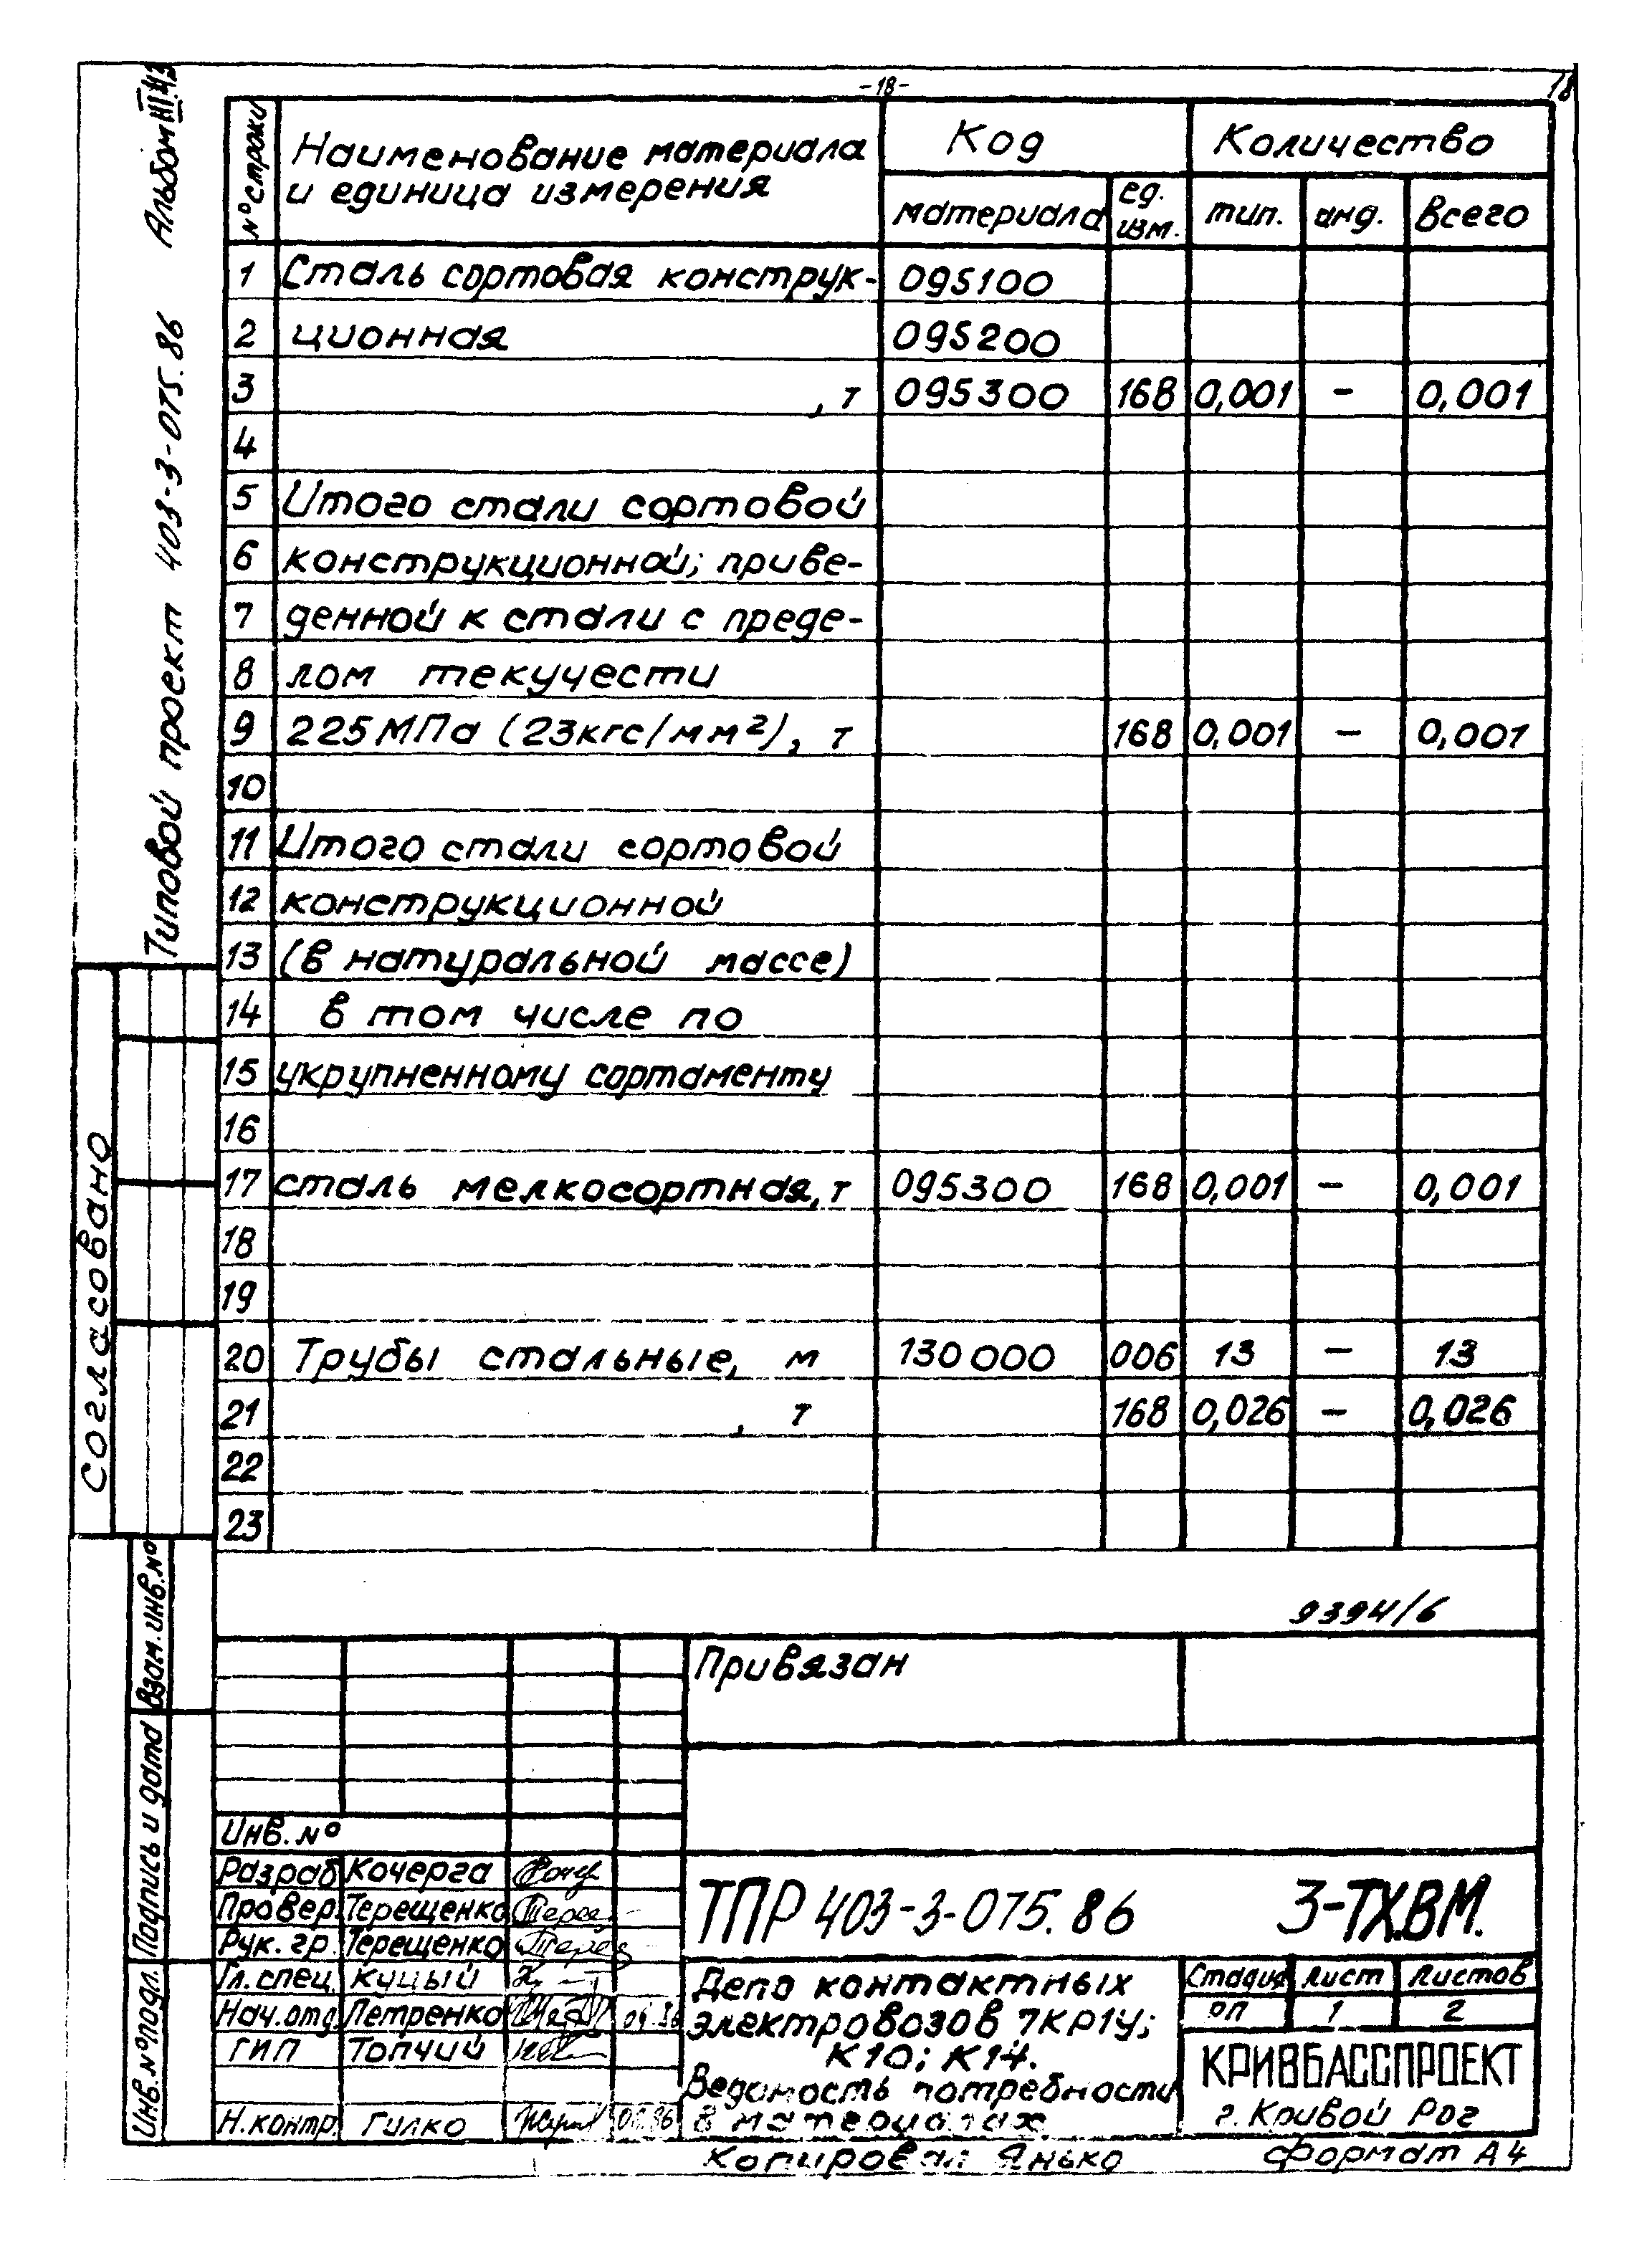 -18-
18
Альбом III.43
Типовой проект 403-3-075.86
№ строки
Наименование материала
и единица измерения
Код
Количество
материала
ед.
изм.
тип.
инд.
Всего
1 Сталь сортовая конструк- 095100
2 ционная 095200
3 , т 095300 168 0,001 - 0,001
4
5 Итого стали сортовой
6 конструкционной; приве-
7 денной к стали с преде-
8 лом текучести
9 225 МПа (23кгс/мм²), т 168 0,001 - 0,001
10
11 Итого стали сортовой
12 конструкционной
13 (в натуральной массе)
14 в том числе по
15 укрупненному сортаменту
16
17 сталь мелкосортная, т 095300 168 0,001 - 0,001
18
19
20 Трубы стальные, м 130000 006 13 - 13
21 , т 168 0,026 - 0,026
22
23
Согласовано
Взам. инв. №
Подпись и дата
Инв. № подл.
9394/6
Привязан
Инв. №
Разраб Кочерга
Провер. Терещенко
Рук. гр. Терещенко
Гл. спец. Куцый
Нач. отд. Петренко
ГИП Топчий
Н. контр. Гилко
ТПР 403-3-075.86 3-ТХ.ВМ.
Депо контактных
электровозов 7КР1У;
К10; К14.
Ведомость потребности
в материалах
Стадия Лист Листов
РП 1 2
КРИВБАССПРОЕКТ
г. Кривой Рог
Копировал Янько
Формат А4